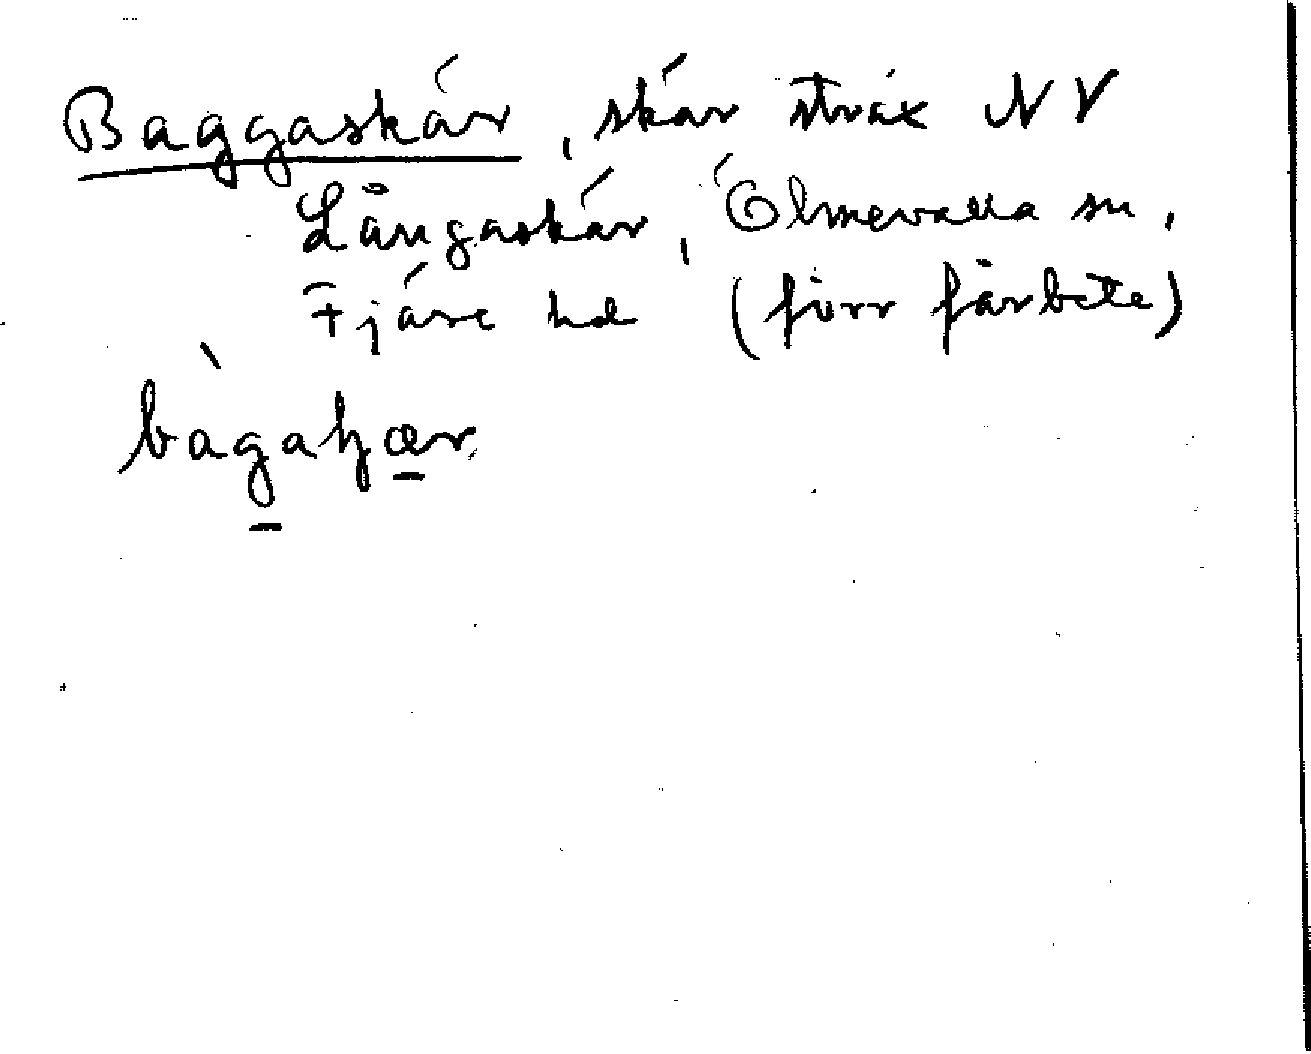 Baggaskär, skär strax NV
Långaskär, Ölmevalla sn,
Fjäre hd (förr fårbete)